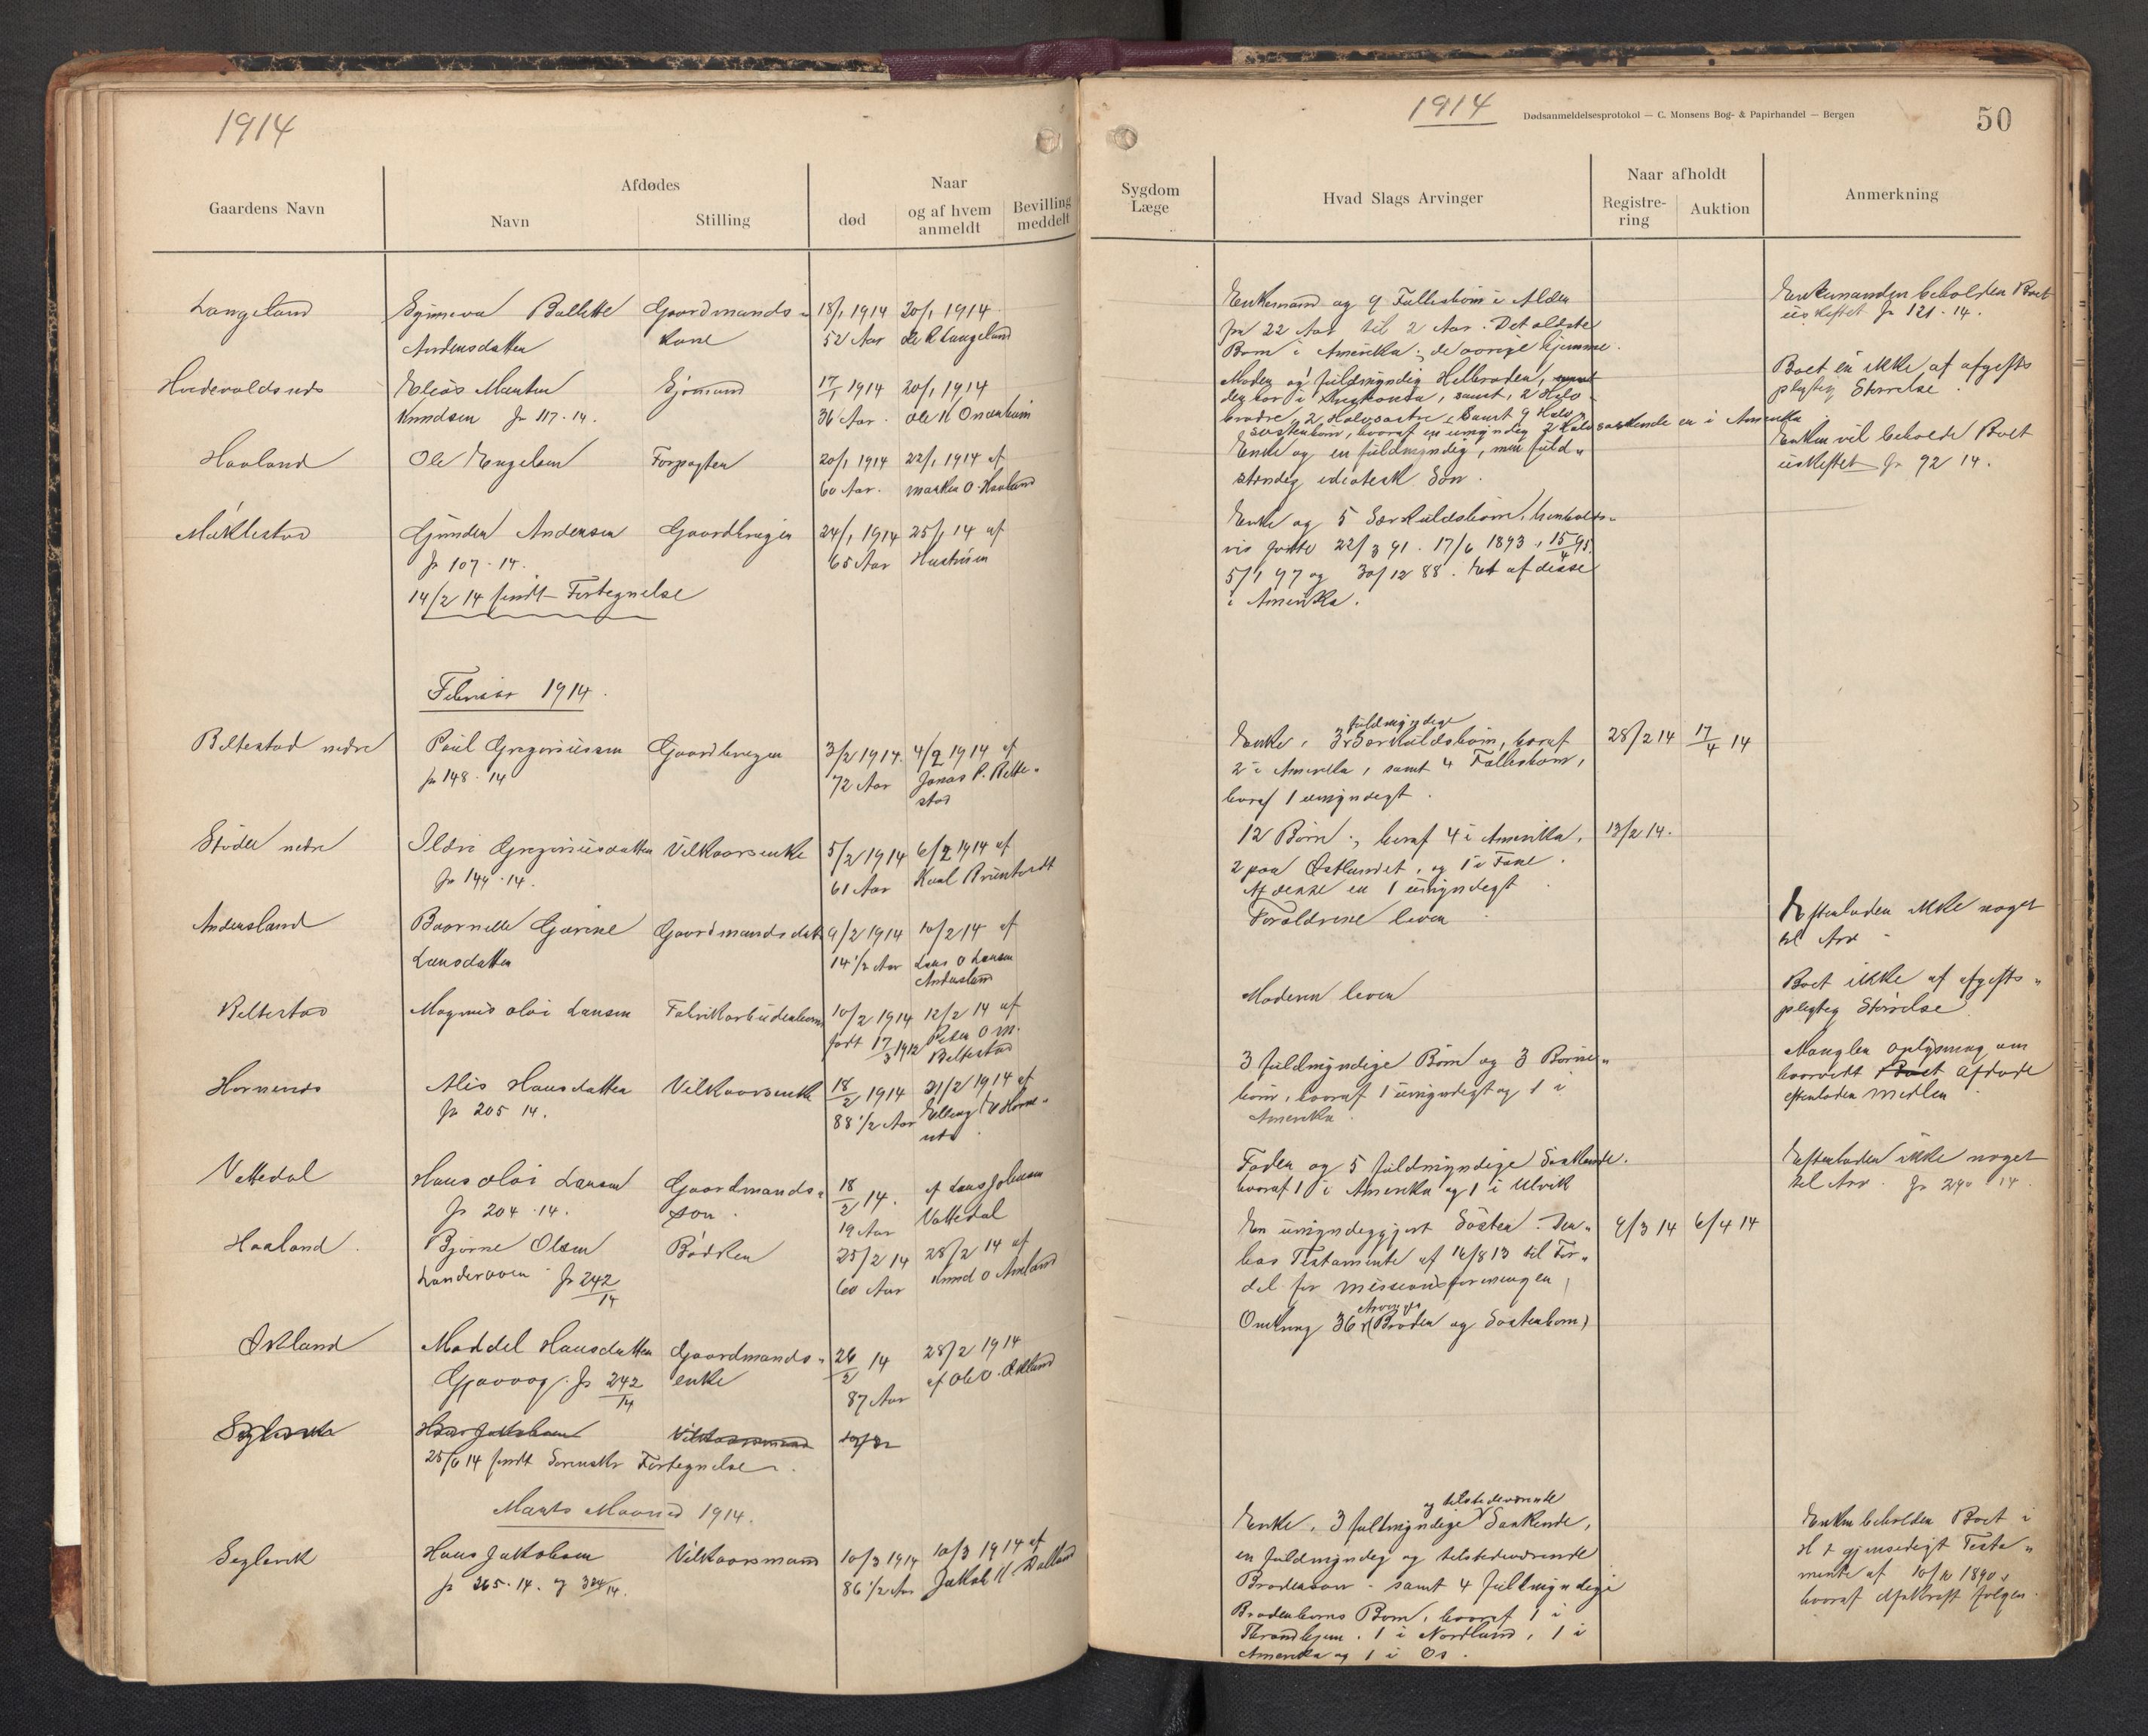 1914
Gaardens Navn
Afdødes
Navn
Stilling
død
Naar
og af hvem
anmeldt
Bevilling
meddelt
Langeland
Synneva Bollette
Andersdatter
Gaardmands-
kone
18/1 1914
52 Aar
20/1 1914
Ole R Langeland
Elias Martin
Knudsen Jr 117-14.
Sjømand
17/1 1914
36 Aar.
20/1 1914
Haaland
Ole Engelsen
Forpagter
20/1 1914
60 Aar.
22/1 1914 af
O. Haaland
Møklestad
Gunder Andersen
Jr 107-14.
14/2 14 sendt Fortegnelse
Gaardbruger
24/1 1914
65 Aar
25/1 14 af
Hustruen
Februar 1914.
Beltestad nedre
Paul Gregoriussen
Jr 148-14
Gaardbruger
3/2 1914.
72 Aar
4/2 1914 af
Jonas P. Belte-
stad
nedre
Gregoriusdatter
Jr 144-14.
Vilkaarsenke
5/2 1914
61 Aar
6/2 1914 af
Andersland
Gurine
Larsdatter
Gaardmandsdatr
9/2 1914
14 1/2 Aar
10/2 14 af
Lars O Larsen
Andersland
Beltestad
Magnus Olai Larsen
10/2 1914
født 17/3 1912
12/2 14 af
Beltestad
Hornends
Alis Hansdatter
Jr 205 14.
Vilkaarsenke
18/2 1914
88 1/2 Aar
21/2 1914 af
Vattedal
Hans Olai Larsen
Jr 204-14.
Gaardmands-
søn.
18/2 14.
19 Aar
af Lars Johnsen
Vattedal
Haaland.
Bjørne Olsen
Jr 242/14
Bødker
25/2 14
60 Aar
28/2 14 af
Økland
Maddel Hansdatter
Gjøvaag. Jr 242/14
Gaardmands-
enke
26/2 14
87 Aar
28/2 1914
af Ole O. Økland
Hans Jakobsen
Vilkaarsmand
25/6 14 sendt Sorenskr Fortegnelse.
Marts Maaned 1914.
Seglevik
Hans Jakobsen
Jr 265-14. og 324/14.
Vilkaarsmand
10/3 1914
86 1/2 Aar
10/3 1914 af
Jakob H
1914
Dødsanmeldelsesprotokol — C. Monsens Bog- & Papirhandel — Bergen
50
Sygdom
Læge
Hvad Slags Arvinger
Naar afholdt
Registre-
ring
Auktion
Anmerkning
Enkemand og 9 Fællesbørn i Alder
fra 22 Aar til 2 Aar. Det ældste
Barn i Amerika; de øvrige hjemme.
Enkemanden beholder Boet
uskiftet Jr 121-14.
Moder og fuldmyndig Helbroder,
der bor i samt 2 Halv-
brødre, 2 Halvsøstre, samt 9 Halv-
søsterbørn, hvoraf en umyndig 2 Halvsøskende er i Amerika
Boet er ikke af afgifts
pligtig Størrelse.
Enke og en fuldmyndig, men fuld-
stændig idiotisk Søn.
Enken vil beholde Boet
uskiftet Jr 92 14.
Enke og 5 Særkuldsbørn, henholds-
vis fødte 22/3 91. 17/6 1893, 15/4 95.
5/1 97 og 30/12 88. Et af disse
i Amerika.
Enke, 3 fuldmyndige Særkuldsbørn, hvoraf
2 i Amerika, samt 4 Fællesbørn,
hvoraf 1 umyndigt.
28/2 14
17/4 14
12 Børn; hvoraf 4 i Amerika,
2 paa Østlandet, og 1 i Fane.
Af disse er 1 umyndigt
13/2 14.
Forældrene lever
Efterlader ikke noget
til Arv
Moderen lever
Boet ikke af afgifts-
pligtig Størrelse
3 fuldmyndige Børn og 3 Børne-
børn, hvoraf 1 umyndigt og 1 i
Amerika
Mangler oplysning om
hvorvidt Boet Afdøde
efterlader midler
Fader og 5 fuldmyndige Søskende.
hvoraf 1 i Amerika og 1 i Ulvik
Efterlader ikke noget
til Arv. Jr 290 14.
En umyndiggjort Søster. Der-
hos Testamente af 16/8 13 til For-
del for missionsforeningen
9/3 14
6/4 14
Omkring 36 Arvinger (Broder og Søsterbørn)
Enke, 3 fuldmyndige og tilstedeværende Søskende,
en fuldmyndig og tilstedeværende
Brodersøn - samt 4 fuldmyndige
Broderbørns Børn, hvoraf 1 i
Throndhjem. 1 i Nordland, 1 i
Amerika og 1 i Os.
Enken beholder Boet i
H t gjensidigt Testa-
mente af 10/10 1890,
hvoraf Afskrift følger.